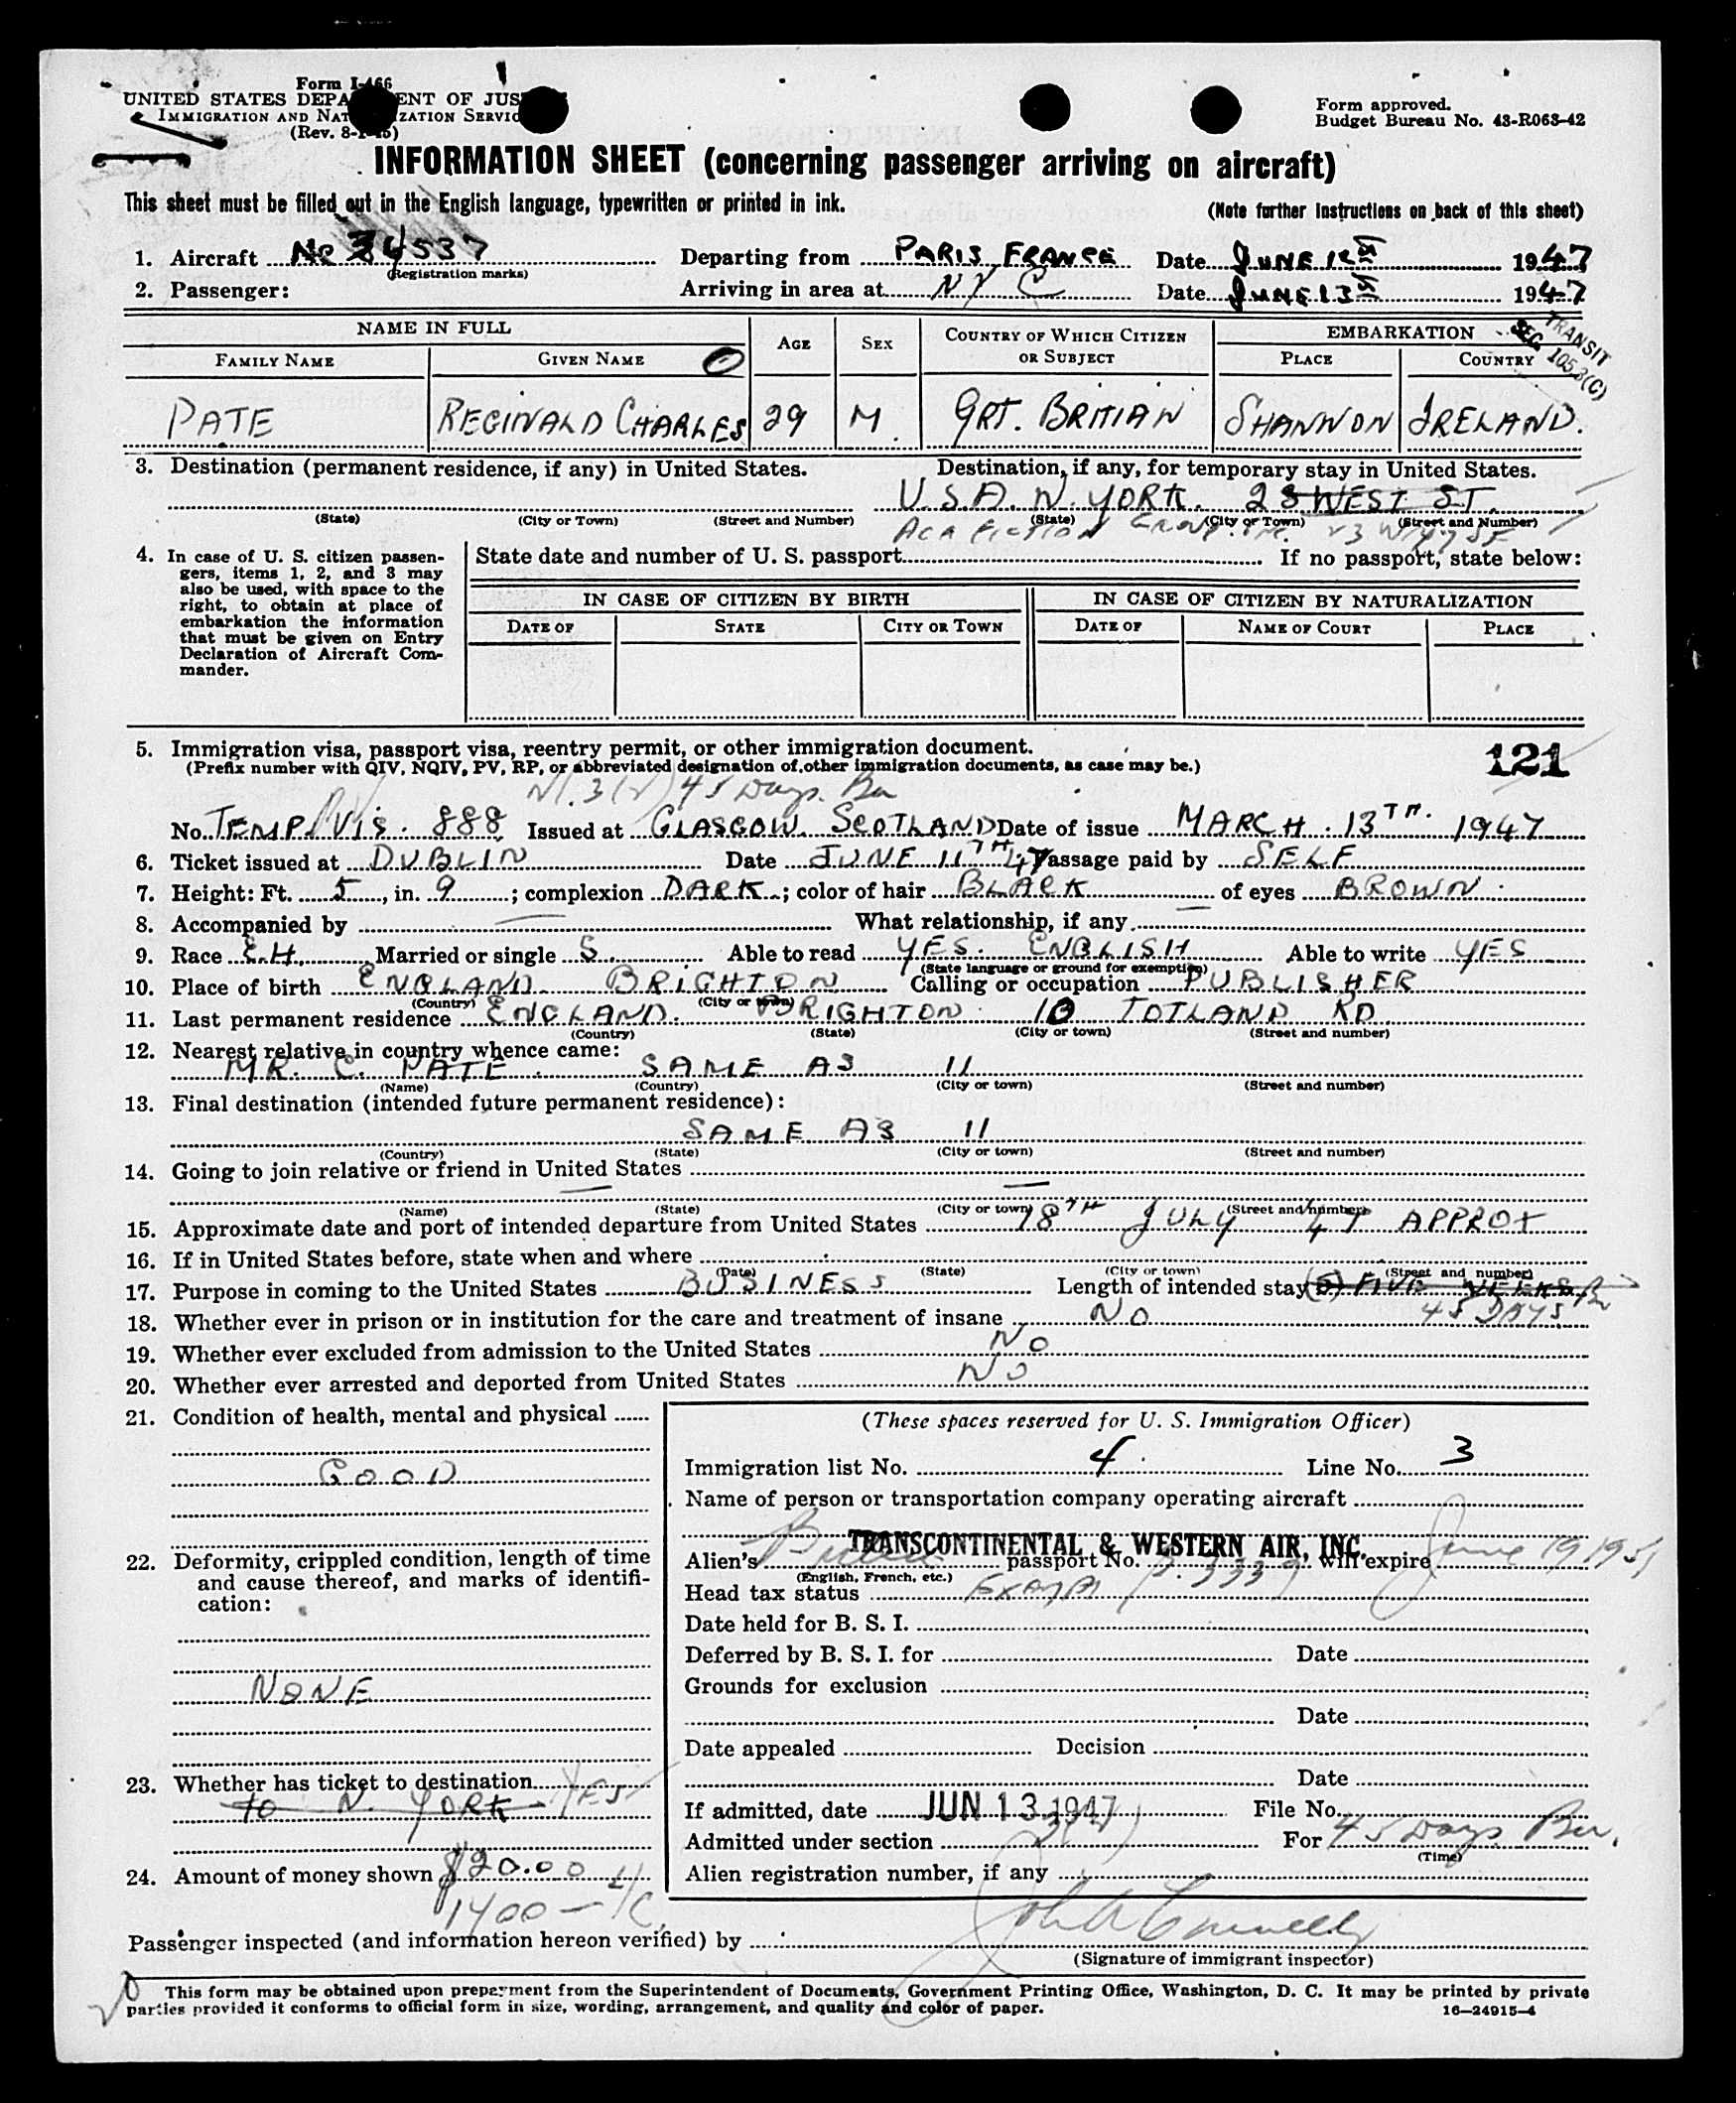 Form I-466
UNITED STATES DEPARTMENT OF JUSTICE
IMMIGRATION AND NATURALIZATION SERVICE
(Rev. 8-1-45)
Form approved.
Budget Bureau No. 43-R063-42
INFORMATION SHEET (concerning passenger arriving on aircraft)
This sheet must be filled out in the English language, typewritten or printed in ink.
(Note further instructions on back of this sheet)
1. Aircraft NC 34537 Departing from PARIS FRANCE Date JUNE 12th 1947
(Registration marks)
2. Passenger: Arriving in area at NYC Date JUNE 13th 1947
TRANSIT
SEC 105.3(C)
NAME IN FULL AGE SEX COUNTRY OF WHICH CITIZEN OR SUBJECT EMBARKATION
FAMILY NAME GIVEN NAME PLACE COUNTRY
PATE REGINALD CHARLES 29 M. GRT. BRITIAN SHANNON IRELAND.
3. Destination (permanent residence, if any) in United States. Destination, if any, for temporary stay in United States.
U.S.A. N. YORK. 23 WEST ST.
(State) (City or Town) (Street and Number) (State) (City or Town) (Street and Number)
Fiction Group Inc. 23 W 47 St
4. In case of U. S. citizen passengers, items 1, 2, and 3 may also be used, with space to the right, to obtain at place of embarkation the information that must be given on Entry Declaration of Aircraft Commander.
State date and number of U. S. passport If no passport, state below:
IN CASE OF CITIZEN BY BIRTH IN CASE OF CITIZEN BY NATURALIZATION
DATE OF STATE CITY OR TOWN DATE OF NAME OF COURT PLACE
5. Immigration visa, passport visa, reentry permit, or other immigration document. 121
(Prefix number with QIV, NQIV, PV, RP, or abbreviated designation of other immigration documents, as case may be.)
45 Days.
No. TEMP. Vis. 888 Issued at GLASGOW. SCOTLAND Date of issue MARCH. 13TH. 1947
6. Ticket issued at DUBLIN Date JUNE 11TH 47 Passage paid by SELF
7. Height: Ft. 5, in. 9; complexion DARK; color of hair BLACK of eyes BROWN.
8. Accompanied by — What relationship, if any —
9. Race E.H. Married or single S. Able to read YES. ENGLISH Able to write YES
(State language or ground for exemption)
10. Place of birth ENGLAND. BRIGHTON Calling or occupation PUBLISHER
(Country) (City or town)
11. Last permanent residence ENGLAND. BRIGHTON 10 TOTLAND RD
(Country) (State) (City or town) (Street and number)
12. Nearest relative in country whence came:
MR. C. PATE. SAME AS 11
(Name) (Country) (City or town) (Street and number)
13. Final destination (intended future permanent residence):
SAME AS 11
(Country) (State) (City or town) (Street and number)
14. Going to join relative or friend in United States
— —
(Name) (State) (City or town) (Street and number)
15. Approximate date and port of intended departure from United States 18TH JULY 47 APPROX
16. If in United States before, state when and where
(Date) (State) (City or town) (Street and number)
17. Purpose in coming to the United States BUSINESS Length of intended stay (5) FIVE WEEKS
45 DAYS
18. Whether ever in prison or in institution for the care and treatment of insane NO
19. Whether ever excluded from admission to the United States NO
20. Whether ever arrested and deported from United States NO
21. Condition of health, mental and physical
GOOD
22. Deformity, crippled condition, length of time and cause thereof, and marks of identification:
NONE
23. Whether has ticket to destination YES
to N. YORK
24. Amount of money shown $20.00
1400 — L/C
(These spaces reserved for U. S. Immigration Officer)
Immigration list No. 4. Line No. 3
Name of person or transportation company operating aircraft
TRANSCONTINENTAL & WESTERN AIR, INC.
Alien's passport No. will expire June 19 1951
(English, French, etc.)
Head tax status Exempt
Date held for B. S. I.
Deferred by B. S. I. for Date
Grounds for exclusion
Date
Date appealed Decision
Date
If admitted, date JUN 13 1947 File No.
Admitted under section 3(2) For 45 Days
(Time)
Alien registration number, if any
Passenger inspected (and information hereon verified) by
(Signature of immigrant inspector)
This form may be obtained upon prepayment from the Superintendent of Documents, Government Printing Office, Washington, D. C. It may be printed by private
parties provided it conforms to official form in size, wording, arrangement, and quality and color of paper. 16—24915-4